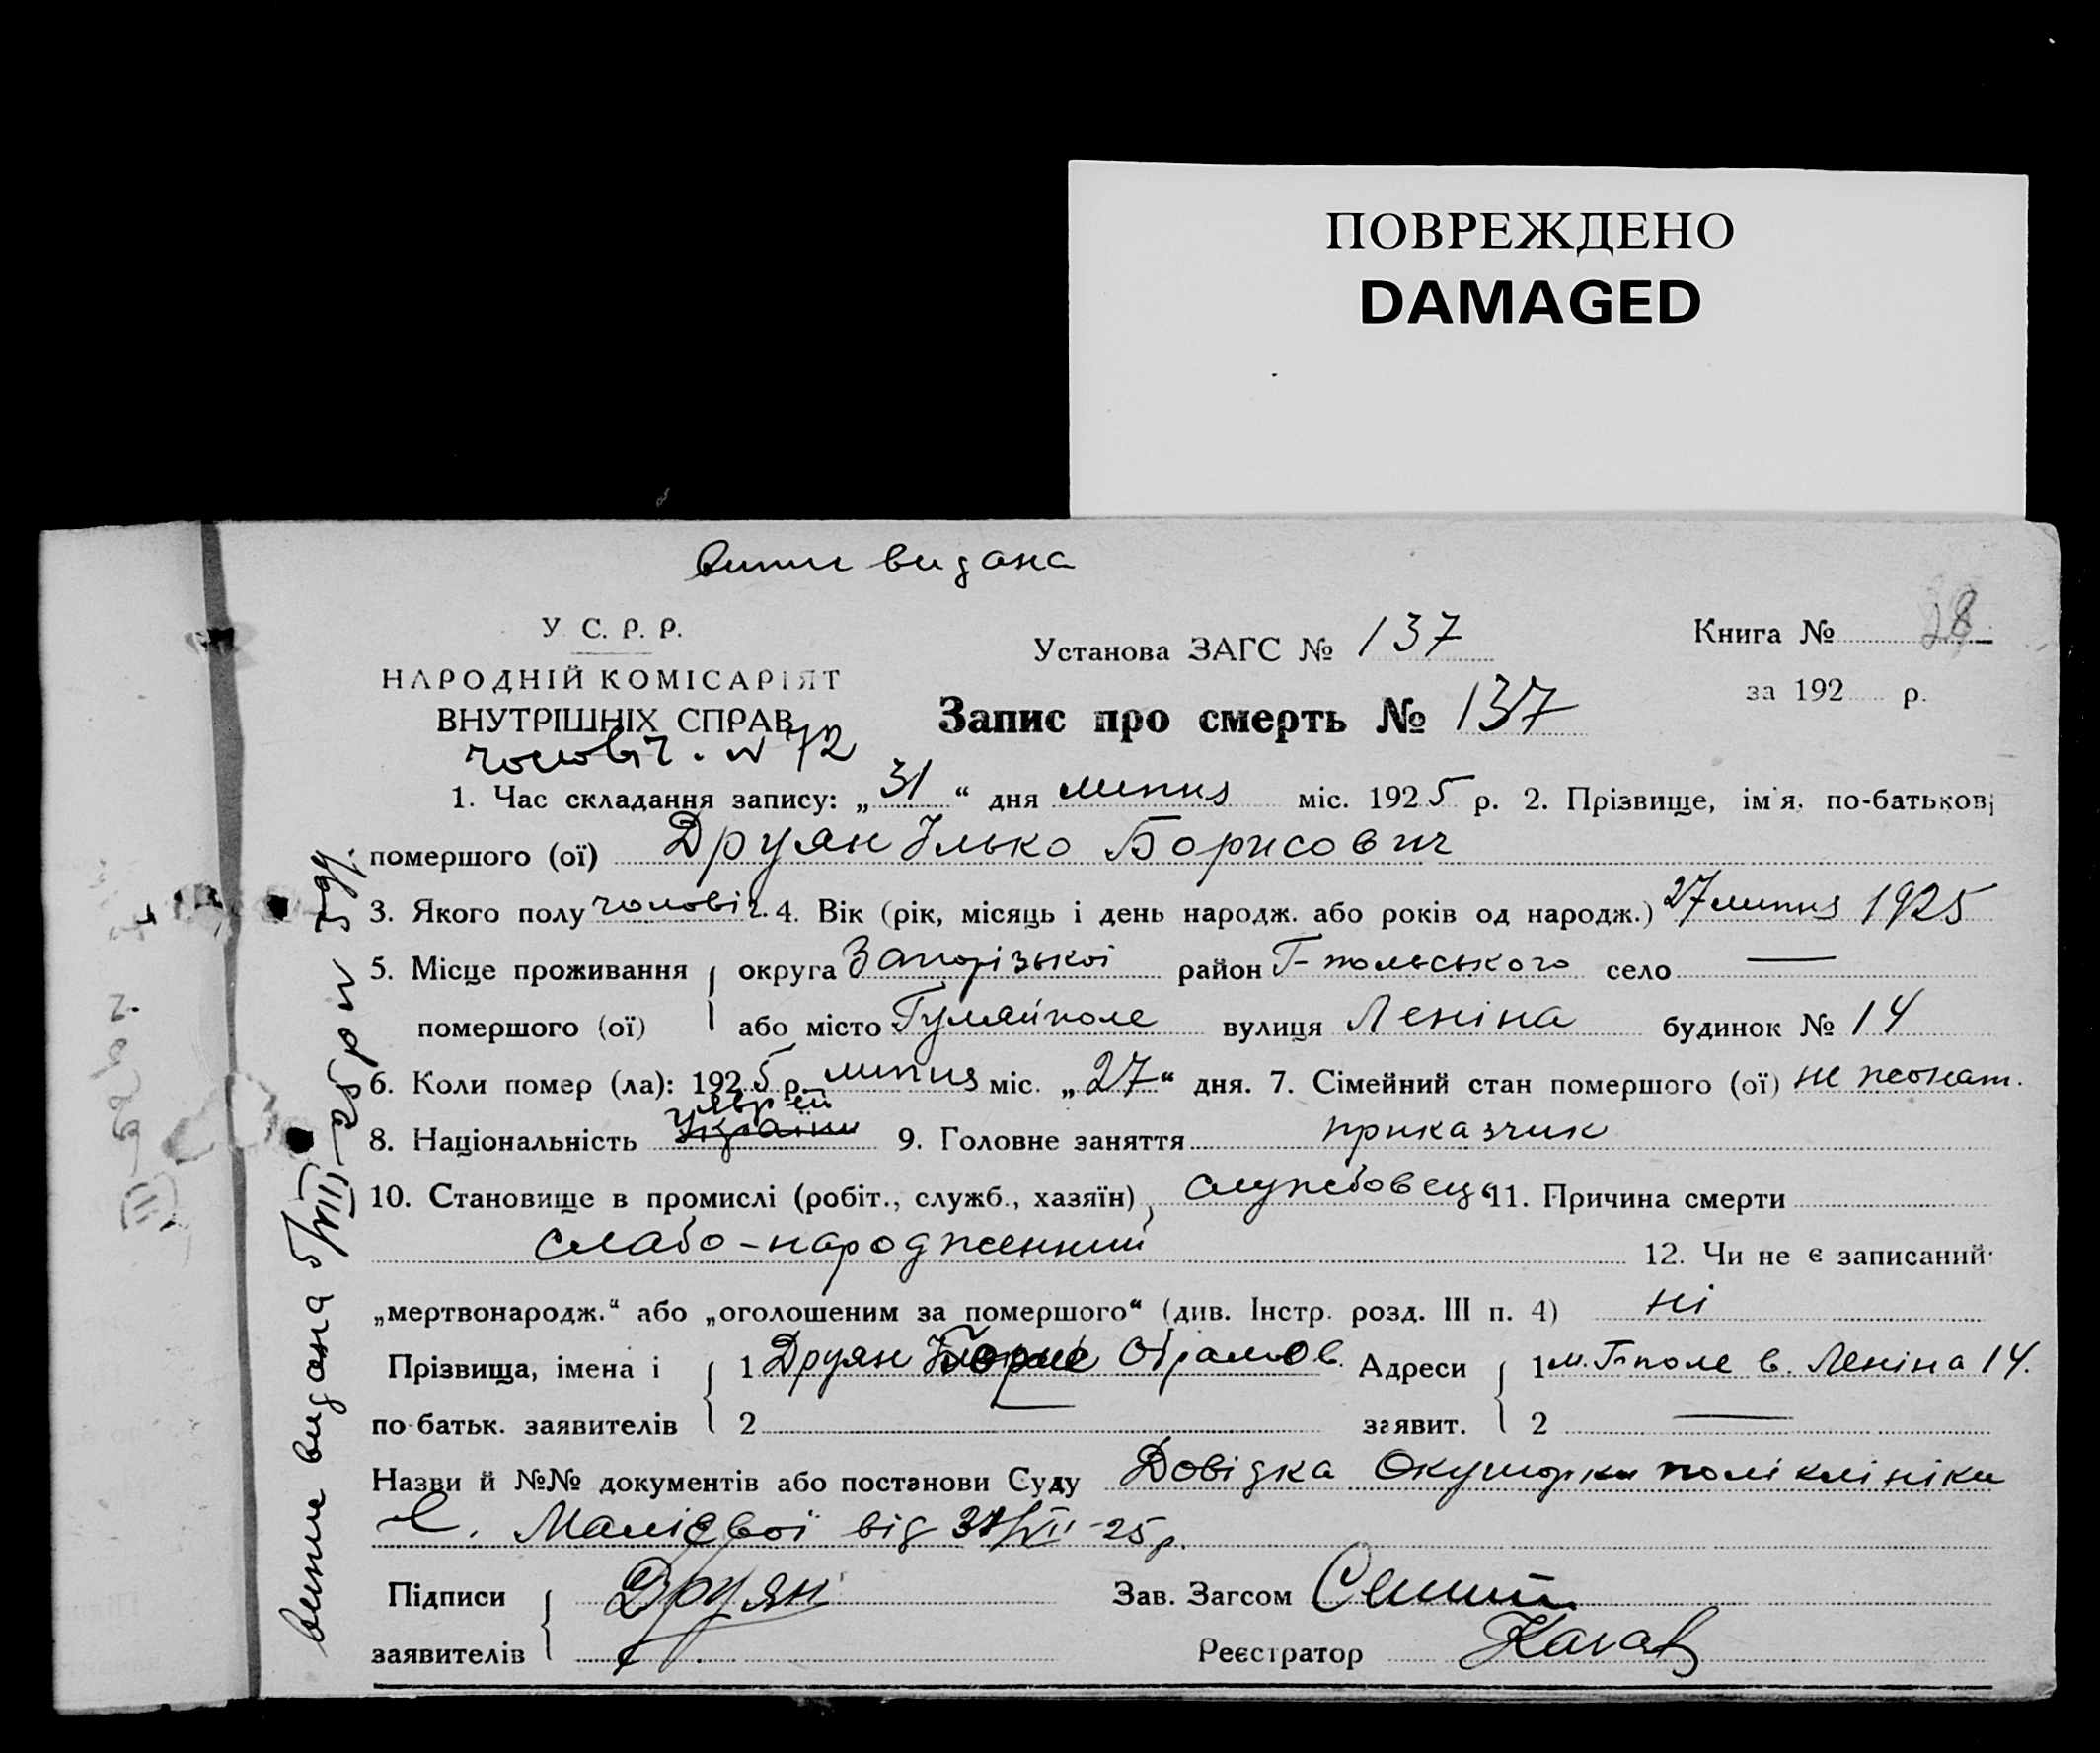 ПОВРЕЖДЕНО
DAMAGED
випис видана
У. С. Р. Р.
НАРОДНІЙ КОМІСАРІЯТ
ВНУТРІШНІХ СПРАВ
чоловіч. № 72
Установа ЗАГС № 137
Книга № 28
за 192 р.
Запис про смерть № 137
1. Час складання запису: „ 31 “ дня липня міс. 1925 р. 2. Прізвище, ім'я, по-батькові
помершого (ої) Друян Ілько Борисович
3. Якого полу чоловіч. 4. Вік (рік, місяць і день народж. або років од народж.) 27 липня 1925
5. Місце проживання округа Запорізької район Г-польського село —
помершого (ої) або місто Гуляйполе вулиця Леніна будинок № 14
6. Коли помер (ла): 1925 р. липня міс. „ 27 “ дня. 7. Сімейний стан помершого (ої) не жонат.
8. Національність Україн єврей 9. Головне заняття приказчик
10. Становище в промислі (робіт., служб., хазяїн) службовець 11. Причина смерти
слабо-народженний 12. Чи не є записаний
„мертвонародж.“ або „оголошеним за помершого“ (див. Інстр. розд. III п. 4) ні
Прізвища, імена і 1 Друян Борис Абрамов. Адреси 1 м. Г-поле в. Леніна 14.
по батьк. заявителів 2 заявит. 2 —
Назви й №№ документів або постанови Суду Довідка Окушорки поліклініки
Малієвої від 31/VII-25р.
Підписи Друян Зав. Загсом
заявителів Реєстратор
випис видана 5/VIII-25р №